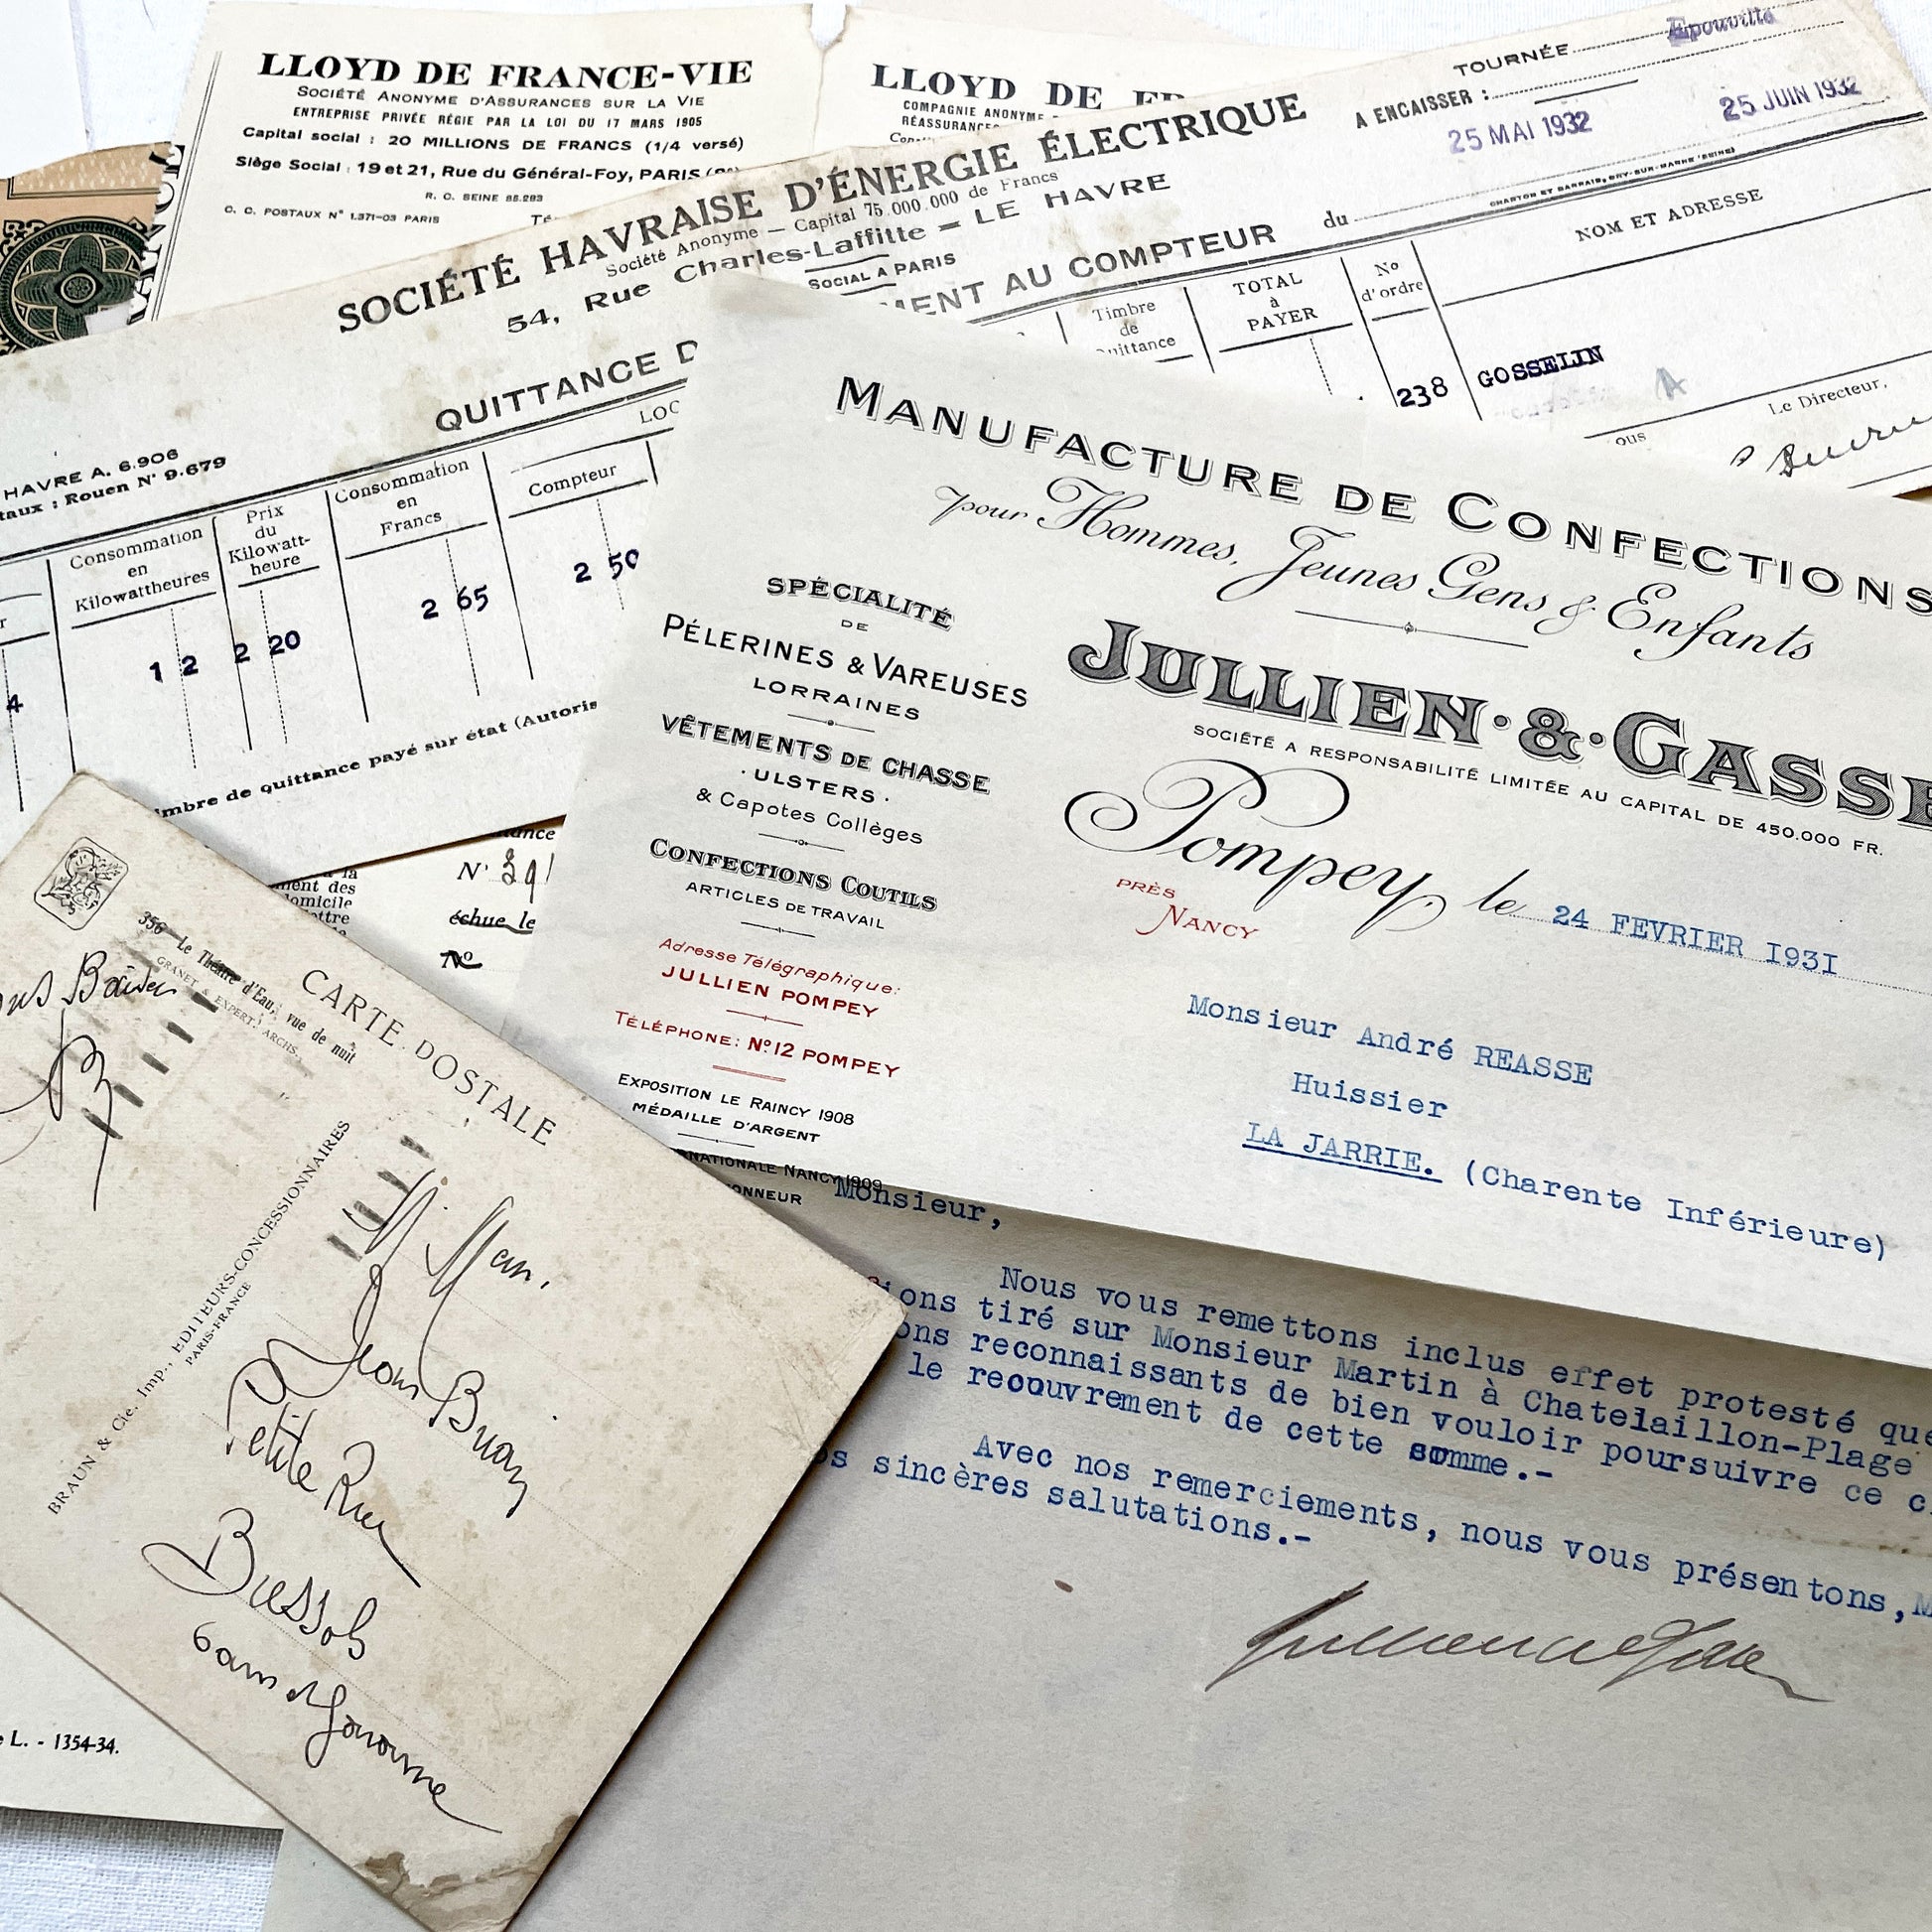 LLOYD DE FRANCE-VIE
SOCIÉTÉ ANONYME D'ASSURANCES SUR LA VIE
ENTREPRISE PRIVÉE RÉGIE PAR LA LOI DU 17 MARS 1905
Capital social : 20 MILLIONS DE FRANCS (1/4 versé)
Siège Social : 19 et 21, Rue du Général-Foy, PARIS
R. C. SEINE 85.283
C. C. POSTAUX N° 1.371-03 PARIS
LLOYD DE
COMPAGNIE ANONYME
SOCIÉTÉ HAVRAISE D'ÉNERGIE ÉLECTRIQUE
Société Anonyme — Capital 75.000.000 de Francs
54, Rue Charles-Laffitte — LE HAVRE
SOCIAL A PARIS
TOURNÉE Epouville
A ENCAISSER :
25 MAI 1932 25 JUIN 1932
QUITTANCE
AU COMPTEUR du
HAVRE A. 6.906
Rouen N° 9.679
Consommation en Kilowattheures
Prix du Kilowatt-heure
Consommation en Francs
Compteur
Timbre de
TOTAL à PAYER
N° d'ordre
NOM ET ADRESSE
4 1 2 2 20 2 65 2 50
238 GOSSELIN
Le Directeur,
de quittance payé sur état
N°
échue le
N°
MANUFACTURE DE CONFECTIONS
pour Hommes, Jeunes Gens & Enfants
JULLIEN & GASSE
SOCIÉTÉ A RESPONSABILITÉ LIMITÉE AU CAPITAL DE 450.000 FR.
Pompey le 24 FEVRIER 1931
PRÈS NANCY
SPÉCIALITÉ
DE
PÉLERINES & VAREUSES
LORRAINES
VÊTEMENTS DE CHASSE
·ULSTERS·
& Capotes Collèges
CONFECTIONS COUTILS
ARTICLES DE TRAVAIL
Adresse Télégraphique:
JULLIEN POMPEY
TÉLÉPHONE: N° 12 POMPEY
EXPOSITION LE RAINCY 1908
MÉDAILLE D'ARGENT
NANCY 1909
Monsieur André REASSE
Huissier
LA JARRIE. (Charente Inférieure)
Monsieur,
Nous vous remettons inclus effet protesté que
tiré sur Monsieur Martin à Chatelaillon-Plage
reconnaissants de bien vouloir poursuivre ce
le recouvrement de cette somme.-
Avec nos remerciements, nous vous présentons,
sincères salutations.-
CARTE POSTALE
356 Le Théâtre d'Eau, vue de nuit
GRANET & EXPERT, ARCHS.
BRAUN & Cie, Imp., EDITEURS-CONCESSIONNAIRES
PARIS-FRANCE
Petite Rue
Bressols
L. - 1354-34.